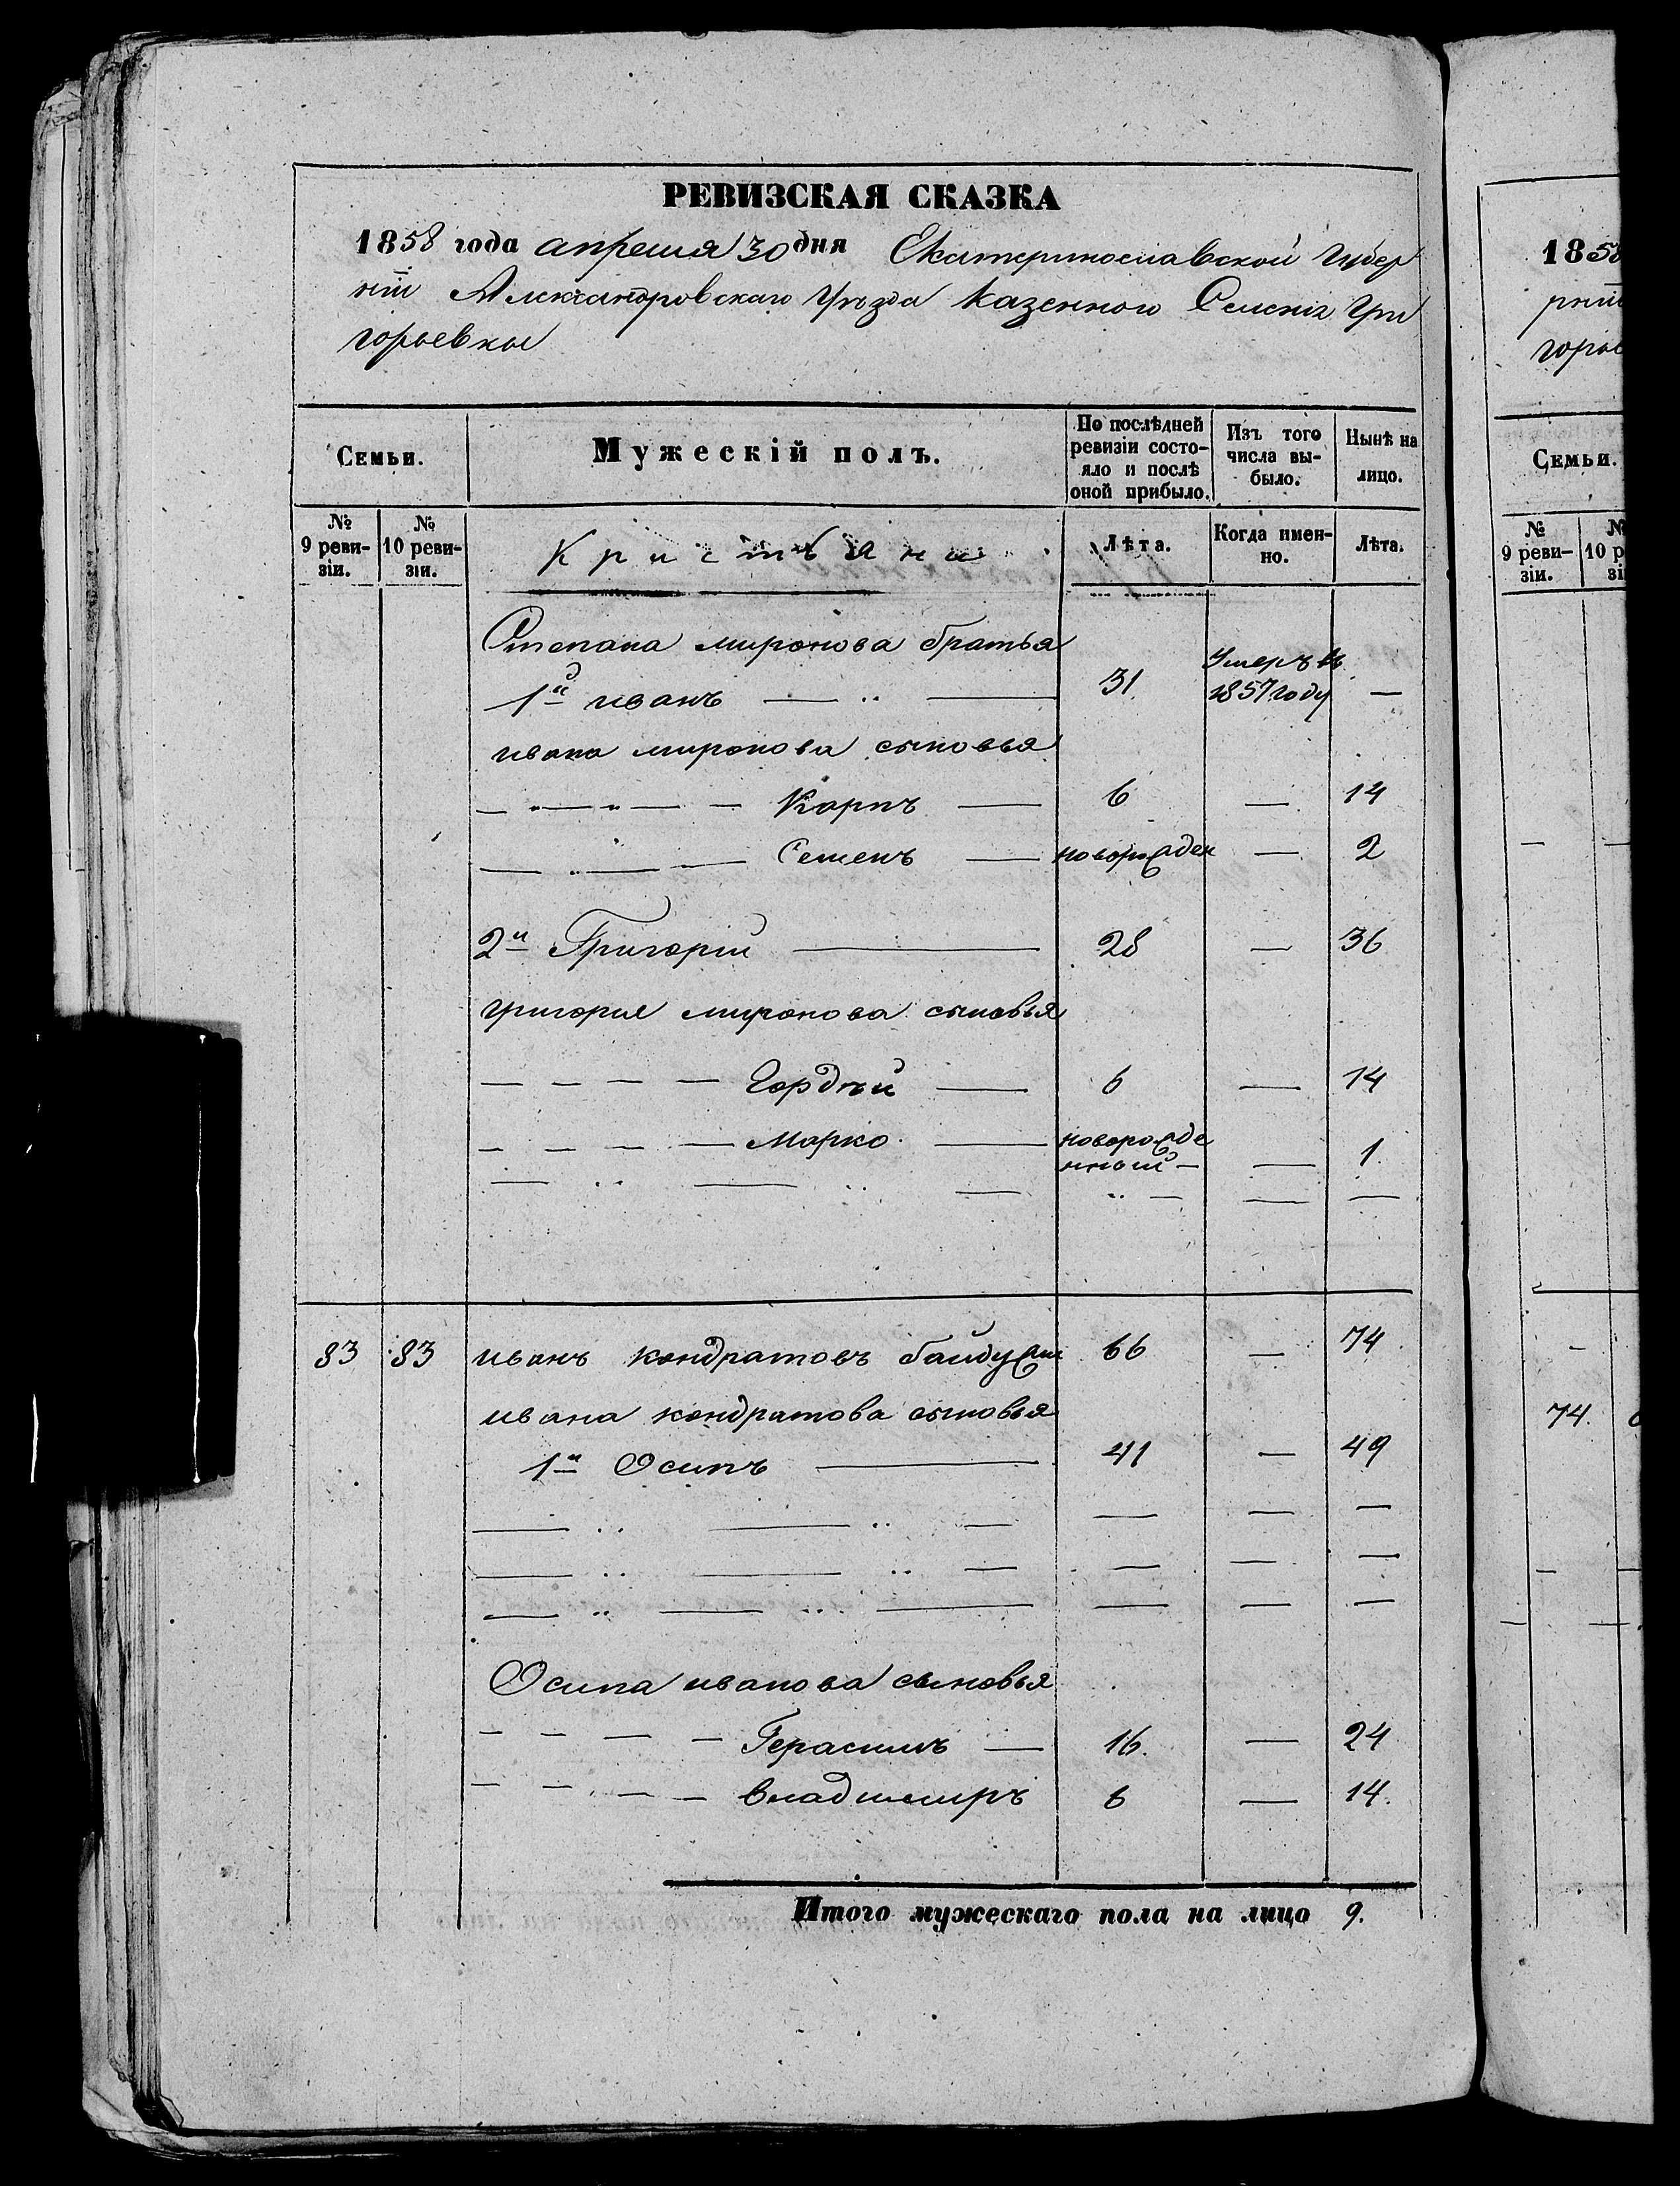 РЕВИЗСКАЯ СКАЗКА
1858 года апреля 30 дня Екатеринославской Губер
ніи Александровскаго Уѣзда Казенного Селенія Гри
горьевки
Семьи.
Мужескій полъ.
По послѣдней ревизіи состо-
яло и послѣ оной прибыло.
Изъ того числа вы-
было.
Нынѣ на лицо.
№ 9 реви-
зіи.
№ 10 реви-
зіи.
Кристьяни
Лѣта.
Когда имен-
но.
Лѣта.
Степана миронова братья
1й иванъ — 31 Умеръ въ 1857 году —
ивана миронова сыновья
Карпъ — 6 — 14
Семенъ — новорожден — 2
2й Григорій — 28 — 36
григория миронова сыновья
Гордѣй — 6 — 14
Марко — новорожде
нный — — 1
83 83 иванъ кондратовъ 66 — 74
ивана кондратова сыновья
1й Осипъ — 41 — 49
Осипа иванова сыновья
Герасимъ — 16 — 24
владимиръ 6 — 14
Итого мужескаго пола на лицо 9.
1858
рніи
горье
Семьи.
№ 9 реви-
зіи.
74.